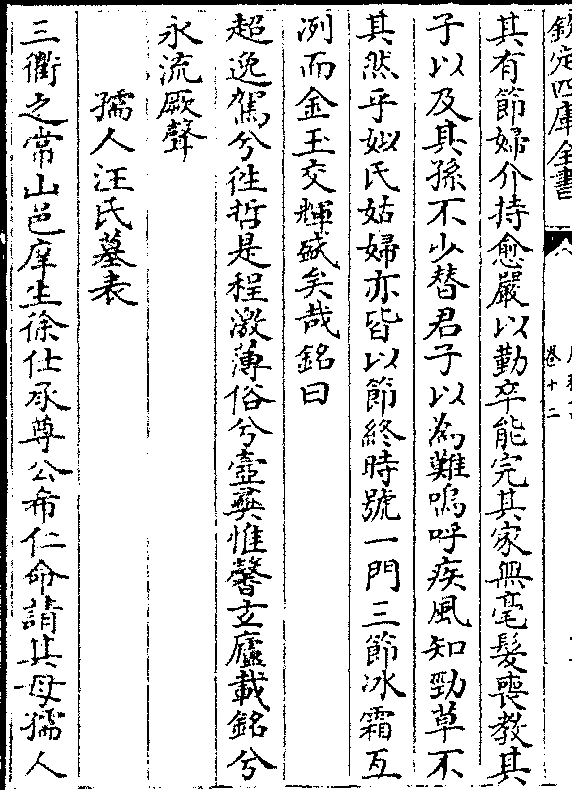 欽定四庫全書
卷十二
其有節婦介持愈嚴以勤卒能完其家無毫髮喪教其
子以及其孫不少替君子以為難嗚呼疾風知勁草不
其然乎姒氏姑婦亦皆以節終時號一門三節冰霜互
冽而金玉交輝盛矣哉銘曰
超逸駕兮徃哲是程激薄俗兮壼彛惟馨玄廬載銘兮
永流厥聲
孺人汪氏墓表
三衢之常山邑庠生徐仕承尊公希仁命請其母孺人